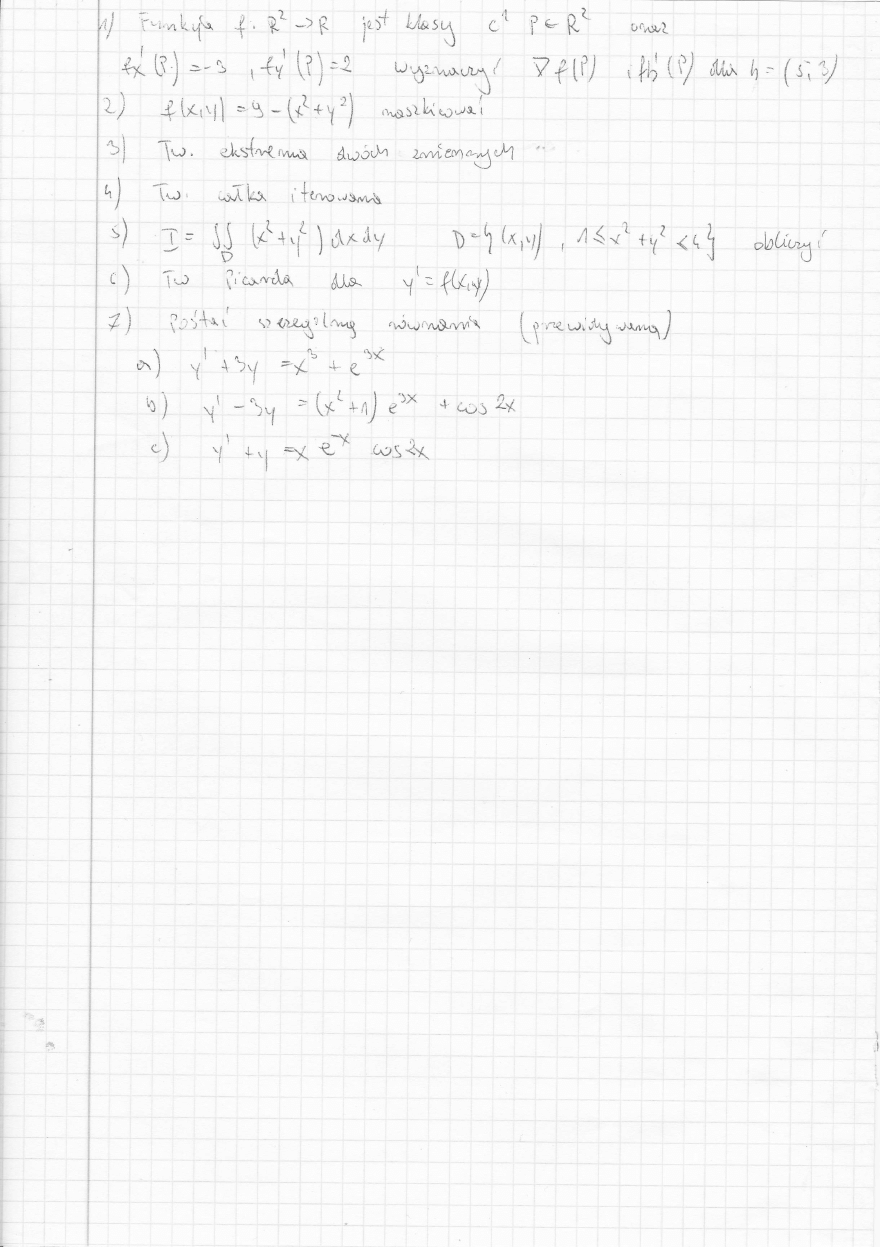 1) Funkcja f: R² → R jest klasy C¹ P ∈ R² oraz
fx'(P) = -3 , fy'(P) = 2 wyznaczyć ∇f(P) i fh'(P) dla h = (5, 3)
2) f(x,y) = 9 - (x² + y²) naszkicować
3) Tw. ekstrema dwóch zmiennych
4) Tw. całka iterowana
5) I = ∬ (x² + y²) dx dy D = {(x,y) , 1 ≤ x² + y² < 4} obliczyć
D
6) Tw Picarda dla y' = f(x,y)
7) Postać szczególną równania (przewidywana)
a) y' + 3y = x³ + e³ˣ
b) y' - 3y = (x² + 1) e³ˣ + cos 2x
c) y' + y = x e⁻ˣ cos 2x